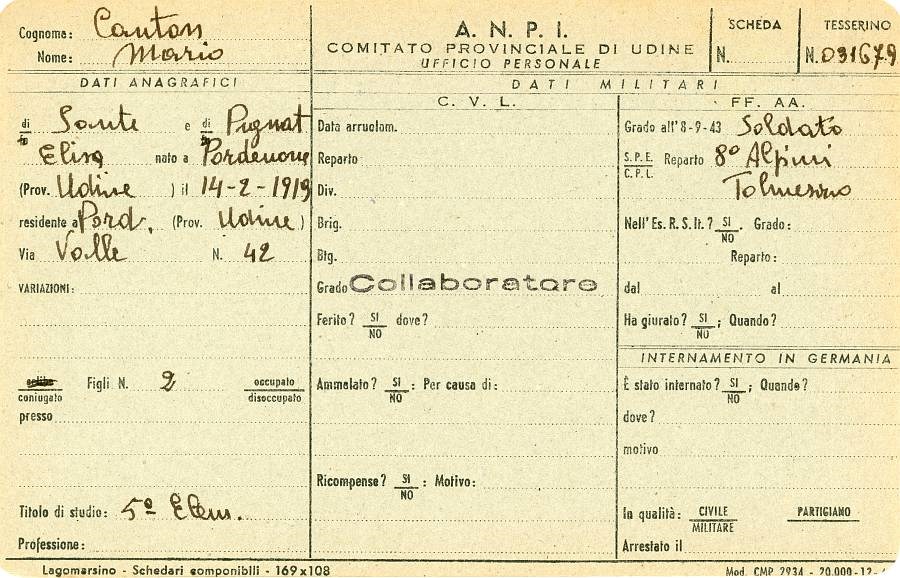 Cognome: Canton
Nome: Mario
A. N. P. I.
COMITATO PROVINCIALE DI UDINE
UFFICIO PERSONALE
SCHEDA
N.
TESSERINO
N. 031679
DATI ANAGRAFICI
di Sante e di Pignat
Elisa nato a Pordenone
(Prov. Udine ) il 14-2-1919
residente a Pord. (Prov. Udine )
Via Valle N. 42
VARIAZIONI:
coniugato Figli N. 2 occupato disoccupato
presso
Titolo di studio: 5ª Elem.
Professione:
DATI MILITARI
C. V. L.
Data arruolam.
Reparto
Div.
Brig.
Btg.
Grado Collaboratore
Ferito? SI NO dove?
Ammalato? SI NO : Per causa di:
Ricompense? SI NO : Motivo:
FF. AA.
Grado all'8-9-43 Soldato
S.P.E. C.P.L. Reparto 8º Alpini
Tolmezzo
Nell'Es. R. S. It.? SI NO . Grado:
Reparto:
dal al
Ha giurato? SI NO ; Quando?
INTERNAMENTO IN GERMANIA
È stato internato? SI NO ; Quando?
dove?
motivo
In qualità: CIVILE MILITARE PARTIGIANO
Arrestato il
Lagomarsino - Schedari componibili - 169x108
Mod. CMP 2934 - 20.000-12-